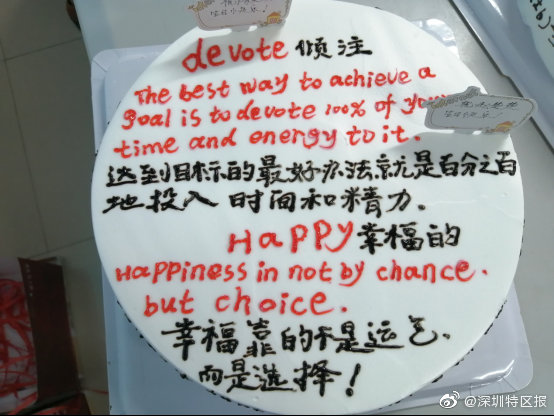 devote 倾注
The best way to achieve a
goal is to devote 100% of your
time and energy to it.
达到目标的最好办法就是百分之百
地投入时间和精力。
HAPPY 幸福的
HAPPiness in not by chance.
but choice.
幸福靠的不是运气、
而是选择!
@深圳特区报